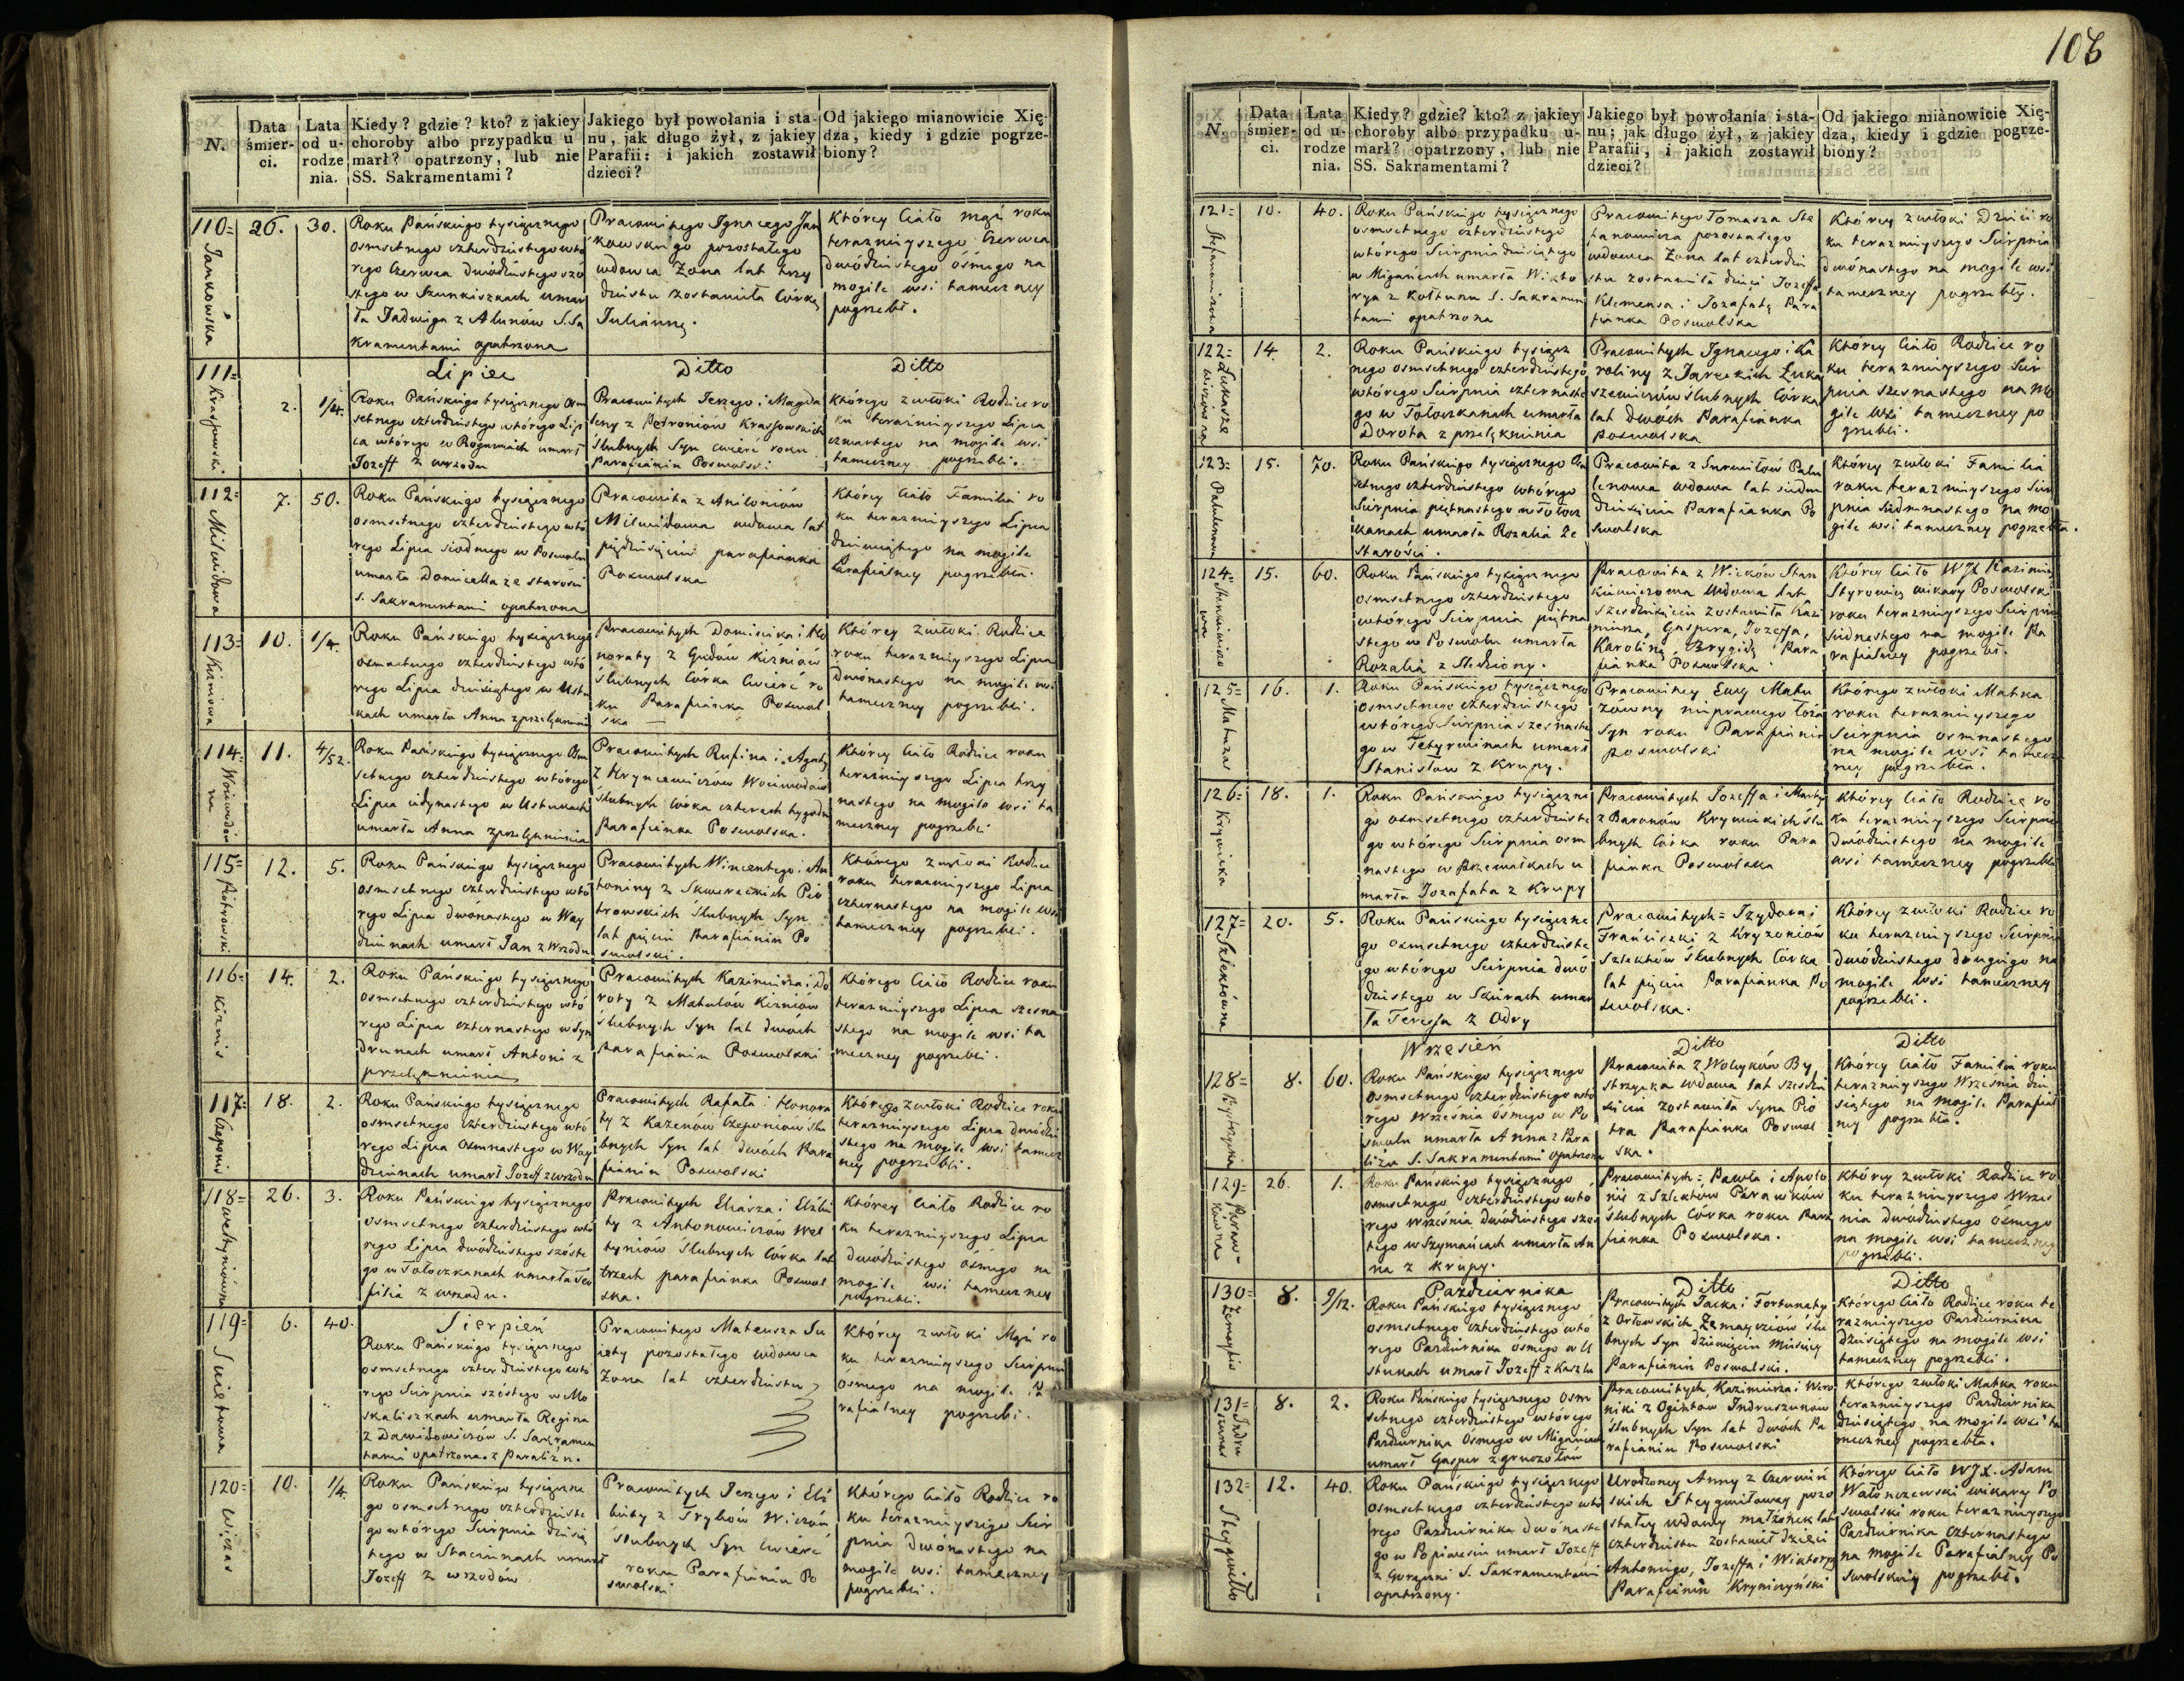 106
N.
Data śmierci.
Lata od urodzenia.
Kiedy? gdzie? kto? z jakiey
choroby albo przypadku u
marł? opatrzony, lub nie
SS. Sakramentami?
Jakiego był powołania i sta-
nu, jak długo żył, z jakiey
Parafii: i jakich zostawił
dzieci?
Od jakiego mianowicie Xię-
dza, kiedy i gdzie pogrze-
biony?
110=
Jankowska
26.
30.
Roku Pańskiego tysiącznego
osmsetnego czterdziestego wtó
rego Czerwca dwódziestego szó
stego w Szunkiszkach umar
ła Jadwiga z Alunów S. Sa
kramentami opatrzona
Pracowitego Ignacego Jan
kowskiego pozostałego
wdowca Żona lat trzy
dziestu zostawiła Córkę
Juliannę.
Którey Ciało mąż roku
teraznieyszego Czerwca
dwódziestego ósmego na
mogile wsi tameczney
pogrzebł.
Lipiec
Ditto
Ditto
111=
Krasjowski
2.
1/4.
Roku Pańskiego tysiącznego Osm
setnego czterdziestego wtórego Lip
ca wtórego w Rogumiach umarł
Jozeff z wrzodu
Pracowitych Jerzego i Magda
leny z Petroniow Krasjowskich
Slubnych Syn cwierć roku
Parafianin Poswolski
Którego zwłoki Rodzice ro
ku teraznieyszego Lipca
czwartego na mogile wsi
tameczney pogrzebli.
112=
Milwidowa
7.
50.
Roku Pańskiego tysiącznego
osmsetnego czterdziestego wtó
rego Lipca siódmego w Poswolu
umarła Domicella ze starości
S. Sakramentami opatrzona
Pracowita z Aniloniów
Milwidowa wdowa lat
pięćdziesięciu parafianka
Poswolska
Którey Ciało Familia ro
ku teraznieyszego Lipca
dziewiątego na mogile
Parafialney pogrzebła.
113=
Kiżniowa
10.
1/4.
Roku Pańskiego tysiącznego
osmsetnego czterdziestego wtó
rego Lipca dziesiątego w Ustu
kach umarła Anna z przelęknieni
Pracowitych Dominika i Ho
noraty z Gudów Kiżniów
Ślubnych Córka Cwierć ro
ku Parafianka Poswol
ska
Którey zwłoki Rodzice
roku teraznieyszego Lipca
Dwónastego na mogile wsi
tameczney pogrzebli.
114=
11.
4/52.
Roku Pańskiego tysiącznego Osm
setnego czterdziestego wtórego
Lipca jedynastego w Ustukach
umarła Anna z przelęknienia
Pracowitych Rufina i Agaty
z Krynczewiczów Wociewodów
Ślubnych Córka czterech tygodni
Parafianka Poswolska.
Którey Ciało Rodzice roku
teraznieyszego Lipca trzy
nastego na mogile wsi ta
meczney pogrzebli
115=
Piotrowski
12.
5.
Roku Pańskiego tysiącznego
osmsetnego czterdziestego wtó
rego Lipca dwónastego w Way
dzinach umarł Jan z wrzodu
Pracowitych Wincentego i An
toniny z Skworeckich Pio
trowskich Ślubnych Syn
lat pięciu Parafianin Po
swolski.
Którego zwłoki Rodzice
roku teraznieyszego Lipca
czternastego na mogile wsi
tameczney pogrzebli.
116=
Kiznis
14.
2.
Roku Pańskiego tysiącznego
osmsetnego czterdziestego wtó
rego Lipca czternastego w Syn
drunach umarł Antoni z
przelęknienia
Pracowitych Kazimierza i Do
roty z Matulów Kizniów
Ślubnych Syn lat dwóch
Parafianin Poswolski
Którego Ciało Rodzice roku
teraznieyszego Lipca szesna
stego na mogile wsi ta
meczney pogrzebli.
117=
Czeponis
18.
2.
Roku Pańskiego tysiącznego
osmsetnego czterdziestego wtó
rego Lipca Osmnastego w Way
dzinach umarł Jozeff z wrzodu
Pracowitych Rafała i Honora
ty z Kazenów Czeponiow Ślu
bnych Syn lat dwóch Para
fianin Poswolski
Którego zwłoki Rodzice roku
teraznieyszego Lipca dwódzie
stego na mogile wsi tamecz
ney pogrzebli.
118=
Weltyniówna
26.
3.
Roku Pańskiego tysiącznego
osmsetnego czterdziestego wtó
rego Lipca dwódziestego szóste
go w Tołoczkanach umarła Teo
filia z wrzodu.
Pracowitych Eliasza i Elżbie
ty z Antonowiczów Wel
tyniów Ślubnych Córka lat
trzech parafianka Poswol
ska.
Którey Ciało Rodzice ro
ku teraznieyszego Lipca
dwódziestego ósmego na
mogile wsi tameczney
pogrzebli.
119=
Suietowa
6.
40.
Sierpień
Roku Pańskiego tysiącznego
osmsetnego czterdziestego wtó
rego Sierpnia szóstego w Mo
skaliszkach umarła Regina
z Dawidowiczów S. Sakramen
tami opatrzona z Paraliżu.
Pracowitego Mateusza Su
iety pozostałego wdowca
Żona lat czterdziestu
Którey zwłoki Mąż ro
ku teraznieyszego Sierpnia
osmego na mogile Pa
rafialney pogrzebł.
120=
Wiczas
10.
1/4.
Roku Pańskiego tysiączne
go osmsetnego czterdzieste
go wtórego Sierpnia dziesią
tego w Staciunach umarł
Jozeff z wrzodów
Pracowitych Jerzego i Elż
biety z Trybów Wiczów
Ślubnych Syn Cwierć
roku Parafianin Po
swolski
Którego Ciało Rodzice ro
ku teraznieyszego Sier
pnia dwónastego na
mogile wsi tameczney
pogrzebli.
N.
Data śmierci.
Lata od urodzenia.
Kiedy? gdzie? kto? z jakiey
choroby albo przypadku u-
marł? opatrzony, lub nie
SS. Sakramentami?
Jakiego był powołania i sta-
nu; jak długo żył, z jakiey
Parafii, i jakich zostawił
dzieci?
Od jakiego mianowicie Xię-
dza, kiedy i gdzie pogrze-
biony?
121=
Stefanowiczowa
10.
40.
Roku Pańskiego tysiącznego
osmsetnego czterdziestego
wtórego Sierpnia dziesiątego
w Migańcach umarła Wikto
rya z Kołtunu S. Sakramen
tami opatrzona
Pracowitego Tomasza Ste
fanowicza pozostałego
wdowca Żona lat czterdzie
stu zostawiła dzieci Jozeffa
Klemensa i Jozafatę Para
fianka Poswolska
Którey zwłoki Dzieci ro
ku teraznieyszego Sierpnia
dwónastego na mogile wsi
tameczney pogrzebły.
122=
Łukasze
wiczowna
14.
2.
Roku Pańskiego tysiącz
nego osmsetnego czterdziestego
wtórego Sierpnia czternaste
go w Tołoczkanach umarła
Dorota z przelęknienia
Pracowitych Ignacego i Ka
roliny z Jareckich Łuka
szewiczów Ślubnych Córka
lat dwóch Parafianka
Poswolska
Którey Ciało Rodzice ro
ku teraznieyszego Sier
pnia szesnastego na mo
gile wsi tameczney po
grzebli.
123=
Patulenowa
15.
70.
Roku Pańskiego tysiącznego Osm
setnego czterdziestego wtórego
Sierpnia piętnastego w Tołocz
kanach umarła Rozalia ze
starości.
Pracowita z Surwiłów Patu
lenowa wdowa lat siedm
dziesięciu Parafianka Po
swolska
Którey zwłoki Familia
roku teraznieyszego Sier
pnia siedmnastego na mo
gile wsi tameczney pogrzebła.
124=
15.
60.
Roku Pańskiego tysiącznego
osmsetnego czterdziestego
wtórego Sierpnia piętna
stego w Poswolu umarła
Rozalia z Sledziony.
Pracowita z Wicków Stan
kiewiczowa Wdowa lat
sześdziesięciu zostawiła Kazi
mierza, Gaspera, Jozeffa,
Karolinę Brygidę Para
fianka Poswolska
Którey Ciało WJX Kazimierz
Styrowicz wikary Poswolski
roku teraznieyszego Sierpnia
siednastego na mogile Pa
rafialney pogrzebł.
125=
Matuzas
16.
1.
Roku Pańskiego tysiącznego
osmsetnego czterdziestego
wtórego Sierpnia szesnaste
go w Tetyrwinach umarł
Stanisław z Krupy.
Pracowitey Ewy Matu
zowny nieprawego łoża
Syn roku Parafianin
Poswolski
Którego zwłoki Matka
roku teraznieyszego
Sierpnia osmnastego
na mogile wsi tamecz
ney pogrzebła.
126=
Krywicka
18.
1.
Roku Pańskiego tysiączne
go osmsetnego czterdzieste
go wtórego Sierpnia osm
nastego w Przewałkach u
marła Jozafata z Krupy
Pracowitych Jozeffa i Marty
z Baronów Krywickich Ślu
bnych Córka roku Para
fianka Poswolska
Którey Ciało Rodzice ro
ku teraznieyszego Sierpnia
Dwódziestego na mogile
wsi tameczney pogrzebli
127=
Szlektówna
20.
5.
Roku Pańskiego tysiączne
go osmsetnego czterdzieste
go wtórego Sierpnia dwó
dziestego w Skirach umar
ła Teressa z Odry
Pracowitych = Izydora i
Franciszki z Kryzoniów
Szlektów Ślubnych Córka
lat pięciu Parafianka Po
swolska.
Którey zwłoki Rodzice ro
ku teraznieyszego Sierpnia
dwódziestego drugiego na
mogile wsi tameczney
pogrzebli.
Wrzesień
Ditto
Ditto
128=
Bystrzycka
8.
60.
Roku Pańskiego tysiącznego
osmsetnego czterdziestego wtó
rego Września ósmego w Po
swolu umarła Anna z Para
liżu S. Sakramentami opatrzona
Pracowita z Wołyków By
strzycka wdowa lat sześdzie
sięciu zostawiła Syna Pio
tra Parafianka Poswol
ska.
Którey Ciało Familia roku
teraznieyszego Września dzie
siątego na mogile Parafial
ney pogrzebła.
129=
Paraw-
kówna
26.
1.
Roku Pańskiego tysiącznego
osmsetnego czterdziestego wtó
rego Września dwódziestego szós
tego w Szymańcach umarła An
na z Krupy.
Pracowitych = Pawła i Apolo
nii z Szlektów Parawków
Ślubnych Córka roku Para
fianka Poswolska.
Którey zwłoki Rodzice ro
ku teraznieyszego Wrześ
nia dwódziestego ósmego
na mogile wsi tameczney
pogrzebli.
Pazdziernika
Ditto
Ditto
130=
Zemaytis
8.
9/12.
Roku Pańskiego tysiącznego
osmsetnego czterdziestego wtó
rego Pazdziernika osmego w U
stukach umarł Jozeff z Kaszlu
Pracowitych Jacka i Fortunaty
z Orłowskich Zemayciów Ślu
bnych Syn dziewięciu miesięcy
Parafianin Poswolski.
Którego Ciało Rodzice roku te
raznieyszego Pazdziernika
dziesiątego na mogile wsi
tameczney pogrzebli.
131=
Indru
szunas
8.
2.
Roku Pańskiego tysiącznego Osm
setnego czterdziestego wtórego
Pazdziernika Ósmego w Migańcach
umarł Gasper z gruczołów
Pracowitych Kazimierza i Wero
niki z Ogintów Indruszunow
Ślubnych Syn lat dwóch Pa
rafianin Poswolski
Którego zwłoki Matka roku
teraznieyszego Pazdziernika
dziesiątego na mogile wsi ta
meczney pogrzebła.
132=
Steygwiłło
12.
40.
Roku Pańskiego tysiącznego
osmsetnego czterdziestego wtó
rego Pazdziernika dwónaste
go w Popiwesiu umarł Jozeff
z Gorączki S. Sakramentami
opatrzony.
Urodzoney Anny z Czerwiń
skich Steygwiłowey pozo
stałey wdowy małżonek lat
czterdziestu zostawił dzieci
Antoniego, Jozeffa i Wiktorę
Parafianin Kryniczyński
Którego Ciało WJX. Adam
Wałonczewski wikary Po
swolski roku teraznieyszego
Pazdziernika czternastego
na mogile Parafialney Po
swolskiey pogrzebł.